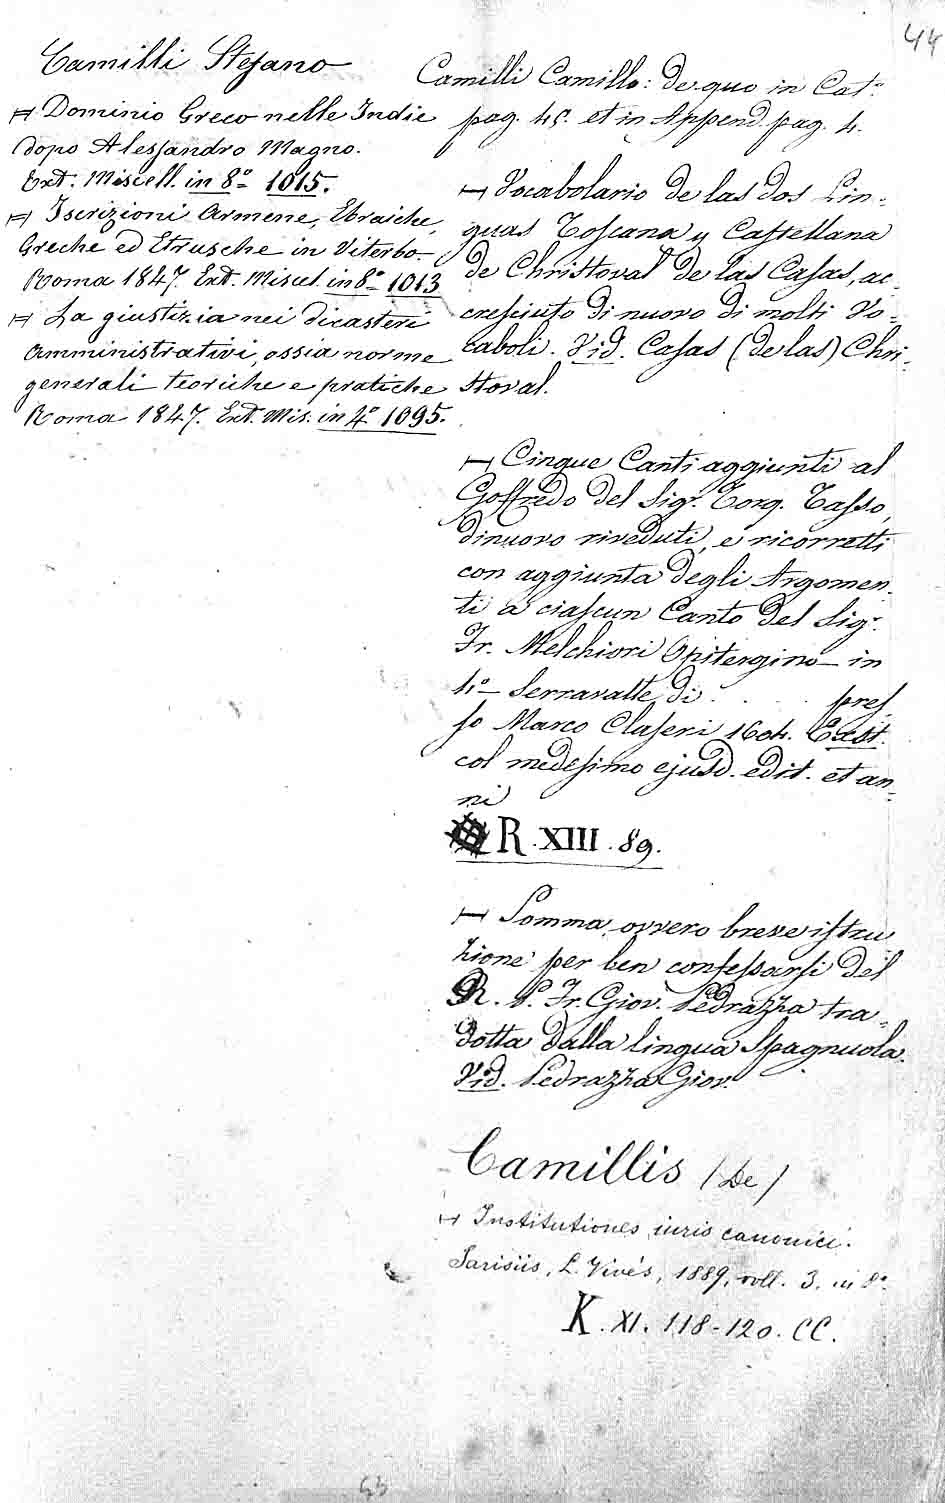 44
Camilli Stefano
Dominio Greco nelle Indie
dopo Alessandro Magno.
Ext. Miscell. in 8º 1015.
Iscrizioni Armene, Ebraiche,
Greche ed Etrusche in Viterbo
Roma 1847. Ext. Miscel. in 8º 1013
La giustizia nei dicasteri
amministrativi, ossia norme
generali teoriche e pratiche
Roma 1847. Ext. Mis. in 4º 1095.
Camilli Camillo: de quo in Catº
pag. 45. et in Append. pag. 4.
Vocabolario de las dos Lin-
guas Toscana y Castellana
de Christoval de las Casas, ac-
cresciuto di nuovo di molti Vo-
caboli. Vid. Casas (de las) Chri-
stoval.
Cinque Canti aggiunti al
Goffredo del Sigr. Torq. Tasso,
dinuovo riveduti, e ricorretti
con aggiunta degli Argomen-
ti a ciascun Canto del Sigr.
Fr. Melchiori Opitergino in
4º Serravalle di . . . pres
so Marco Claseri 1604. Exst.
col medesimo ejusd. edit. et an-
ni
R. XIII. 89.
Somma, ovvero breve istru
zione per ben confessarsi del
R. P. Fr. Giov. Pedrazza tra-
dotta dalla lingua Spagnuola.
Vid. Pedrazza Giov.
Camillis (De)
Institutiones iuris canonici.
Parisiis, L. Vivés, 1889, voll. 3. in 8º
K. XI. 118-120. CC.